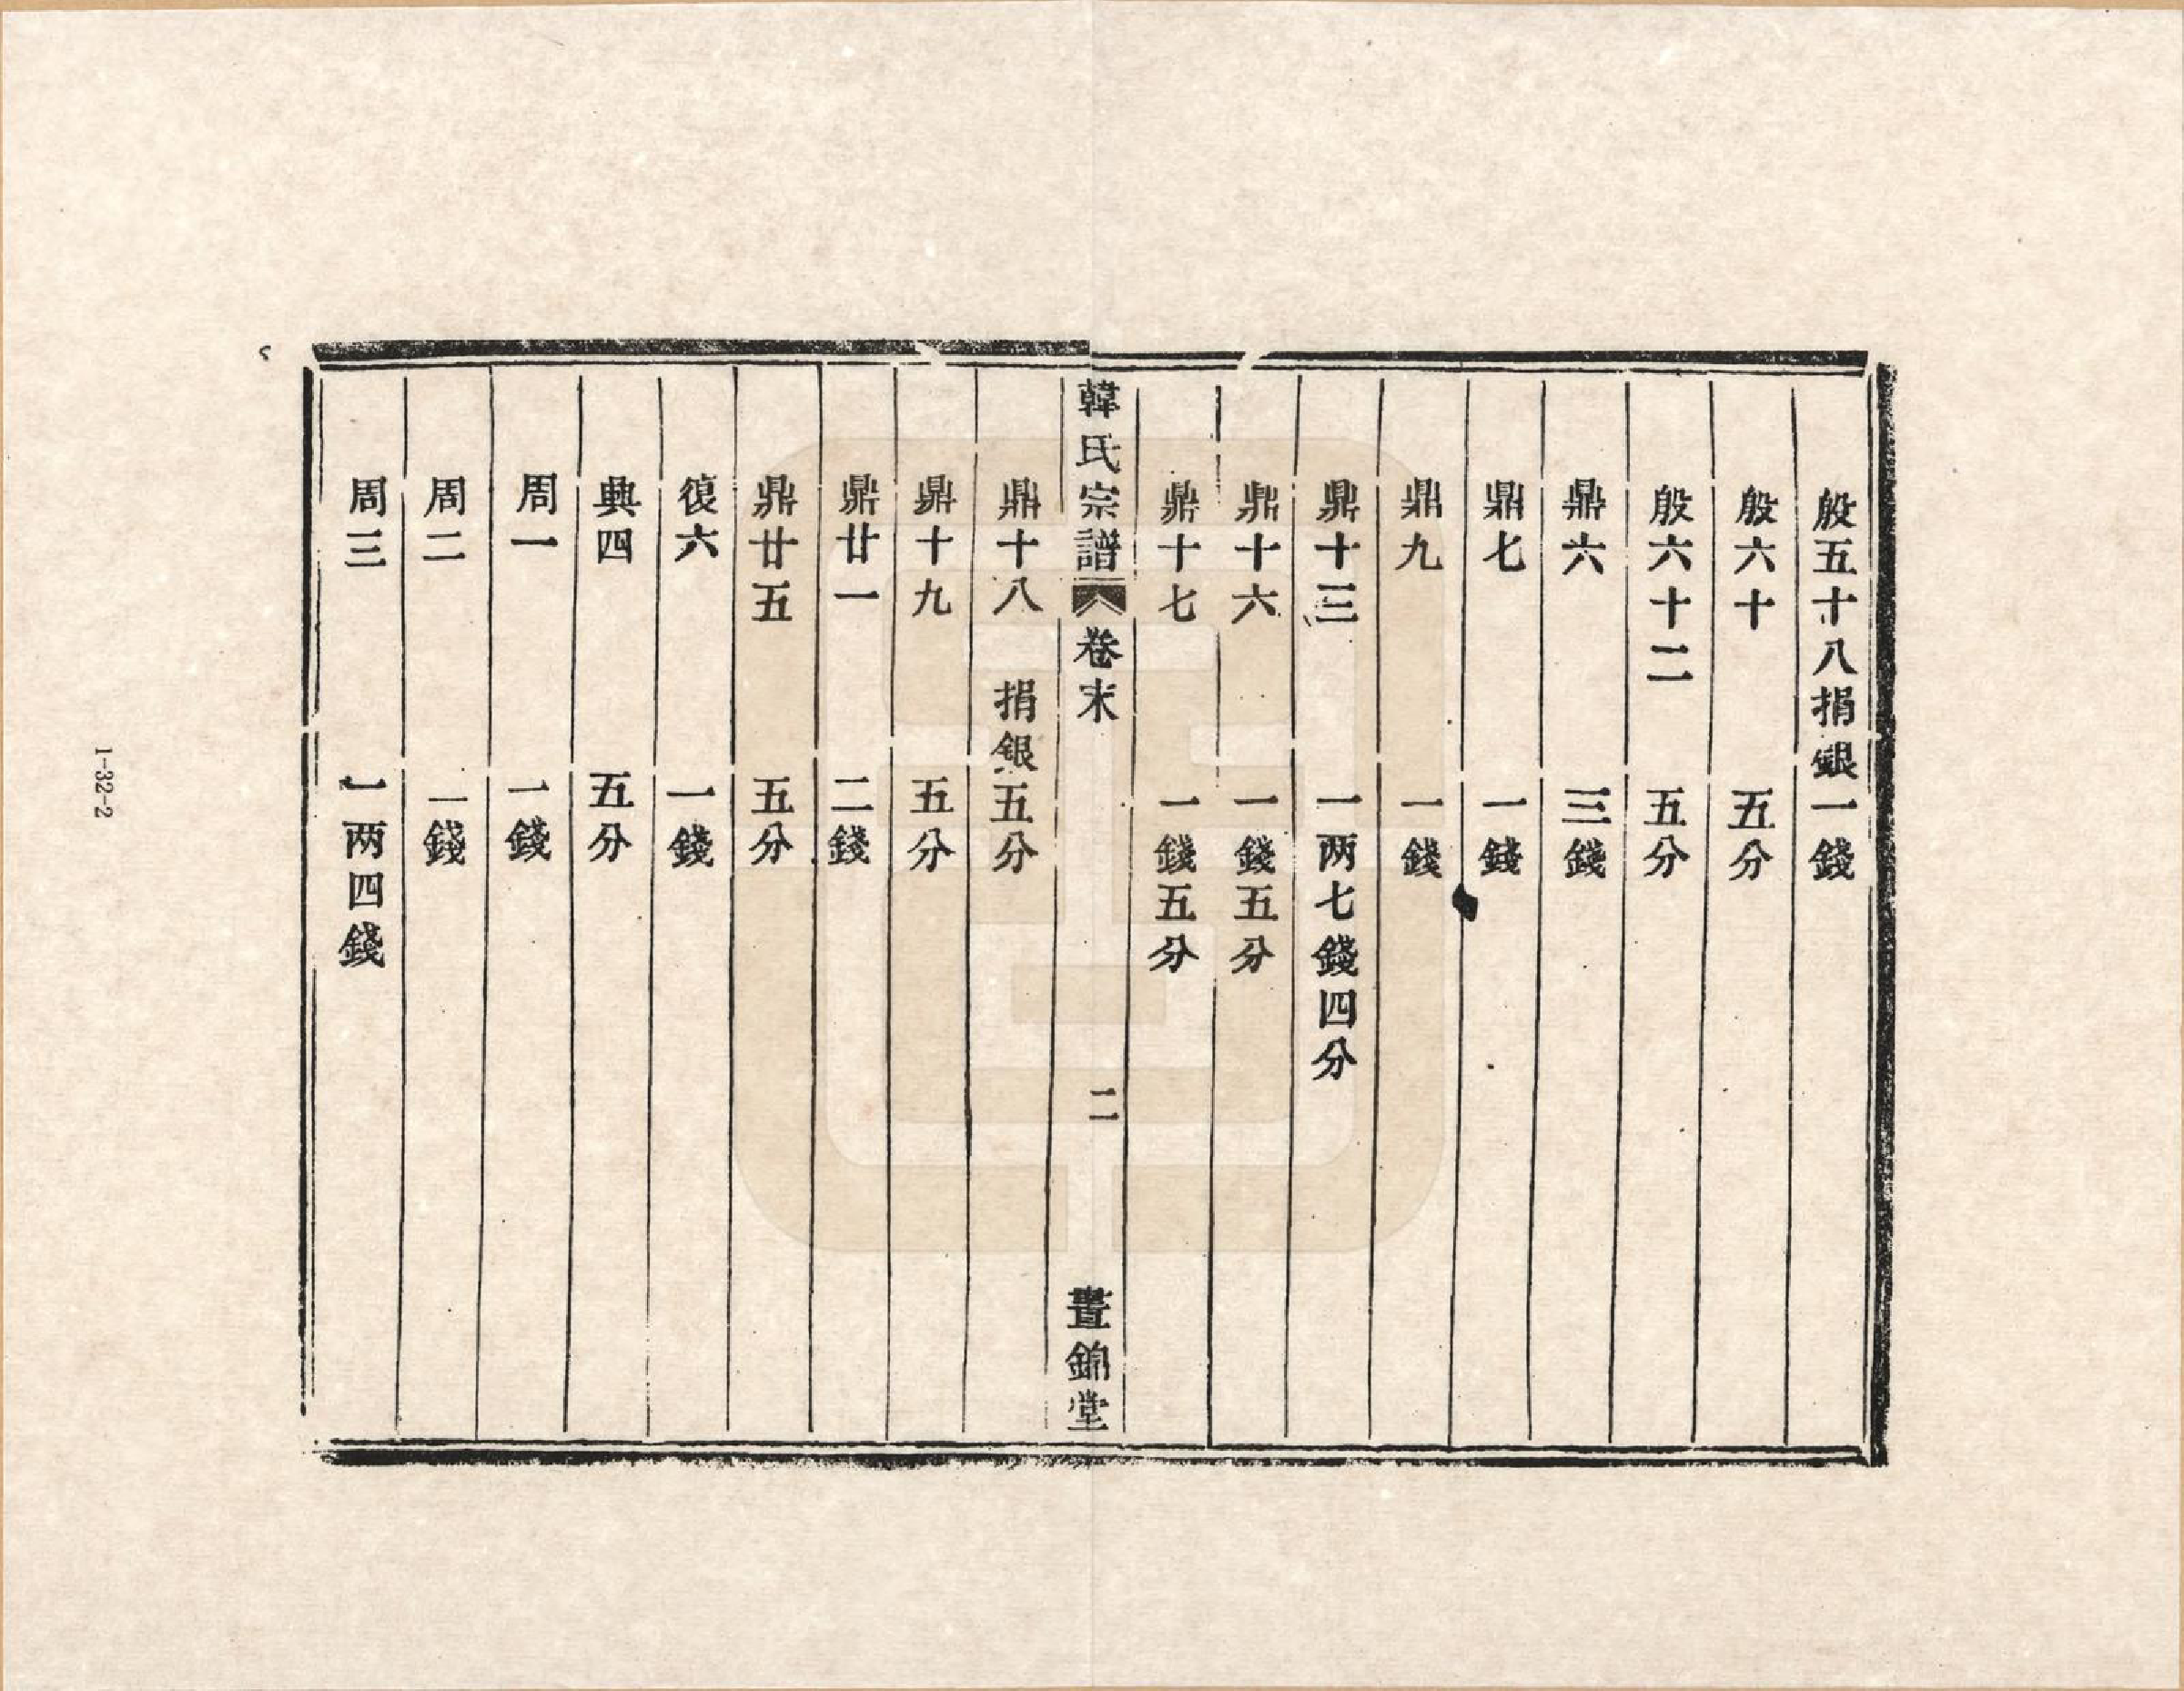 殷五十八捐銀一錢
殷六十 五分
殷六十二 五分
鼎六 三錢
鼎七 一錢
鼎九 一錢
鼎十三 一两七錢四分
鼎十六 一錢五分
鼎十七 一錢五分
韓氏宗譜 卷末 二 晝錦堂
鼎十八 捐銀五分
鼎十九 五分
鼎廿一 二錢
鼎廿五 五分
復六 一錢
興四 五分
周一 一錢
周二 一錢
周三 一两四錢
1-32-2